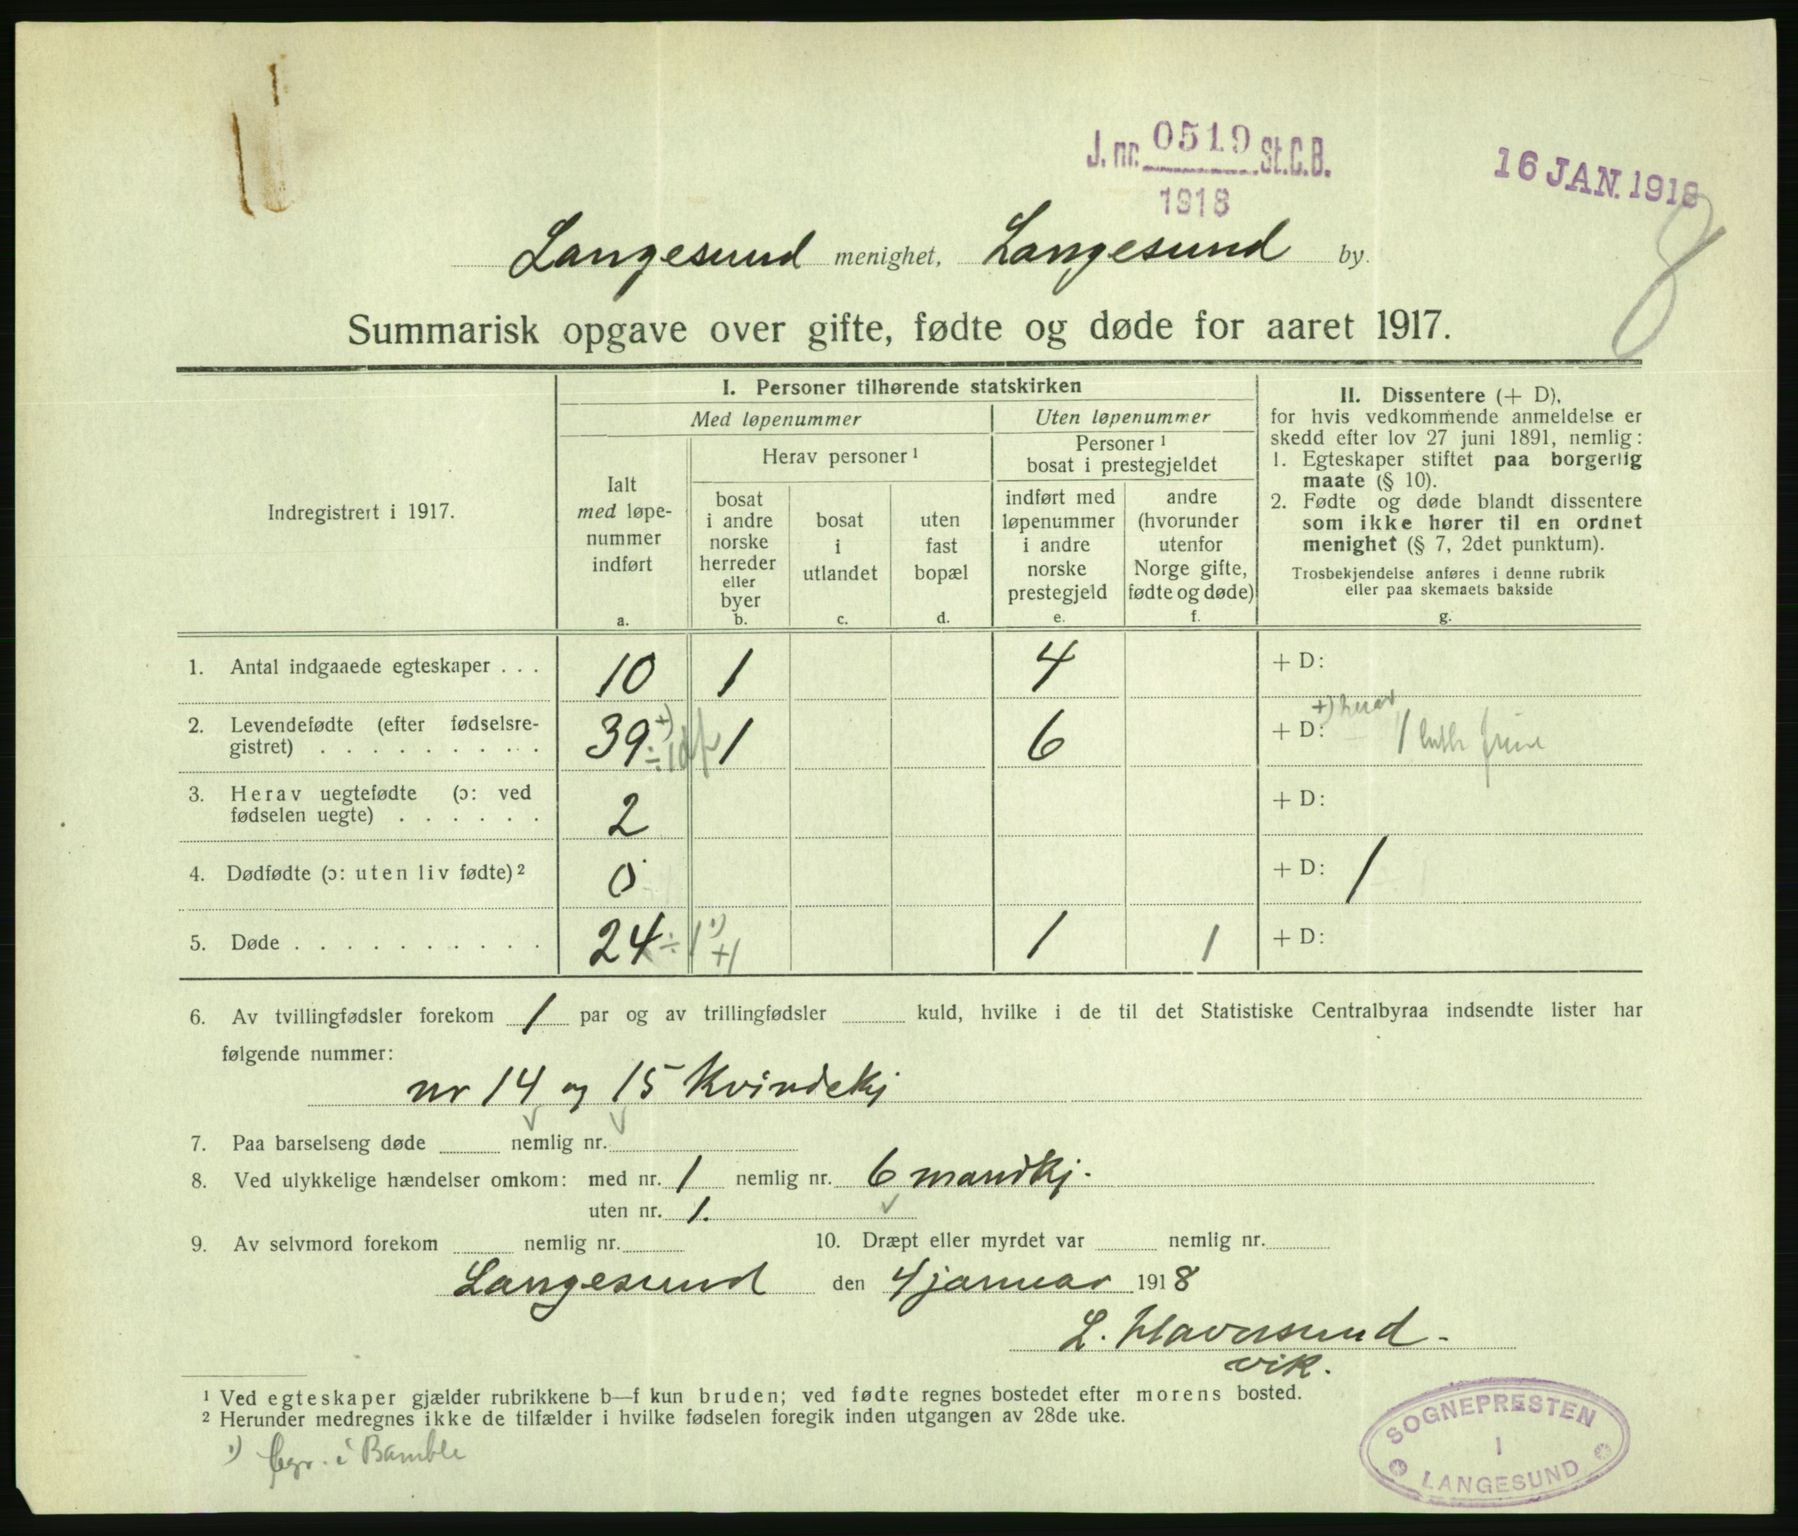 J. nr. 0519 St.C.B.
1918
16 JAN. 1918
8
Langesund menighet, Langesund by.
Summarisk opgave over gifte, fødte og døde for aaret 1917.
Indregistrert i 1917.
I. Personer tilhørende statskirken
Med løpenummer
Uten løpenummer
Ialt
med løpe-
nummer
indført
a.
Herav personer ¹
bosat
i andre
norske
herreder
eller
byer
b.
bosat
i
utlandet
c.
uten
fast
bopæl
d.
Personer ¹
bosat i prestegjeldet
indført med
løpenummer
i andre
norske
prestegjeld
e.
andre
(hvorunder
utenfor
Norge gifte,
fødte og døde)
f.
II. Dissentere (+ D),
for hvis vedkommende anmeldelse er
skedd efter lov 27 juni 1891, nemlig:
1. Egteskaper stiftet paa borgerlig
maate (§ 10).
2. Fødte og døde blandt dissentere
som ikke hører til en ordnet
menighet (§ 7, 2det punktum).
Trosbekjendelse anføres i denne rubrik
eller paa skemaets bakside
g.
1. Antal indgaaede egteskaper . . . 10 1 4 + D:
2. Levendefødte (efter fødselsre-
gistret) . . . . . . . . . 39 +) ÷ 1 1 6 + D: +) herav 1 luth
3. Herav uegtefødte (ɔ: ved
fødselen uegte) . . . . . . 2 + D:
4. Dødfødte (ɔ: uten liv fødte) ² 0 + D: 1
5. Døde . . . . . . . . . . 24 ÷ 1 ¹) +1 1 1 + D:
6. Av tvillingfødsler forekom 1 par og av trillingfødsler kuld, hvilke i de til det Statistiske Centralbyraa indsendte lister har
følgende nummer:
nr 14 og 15 Kvindekj
7. Paa barselseng døde nemlig nr.
8. Ved ulykkelige hændelser omkom: med nr. 1 nemlig nr. 6 mandkj.
uten nr. 1.
9. Av selvmord forekom nemlig nr. 10. Dræpt eller myrdet var nemlig nr.
Langesund den 4 januar 1918
L. Haversund.
vik.
¹ Ved egteskaper gjælder rubrikkene b—f kun bruden; ved fødte regnes bostedet efter morens bosted.
² Herunder medregnes ikke de tilfælder i hvilke fødselen foregik inden utgangen av 28de uke.
¹) begr. i Bamble
SOGNEPRESTEN
I
LANGESUND